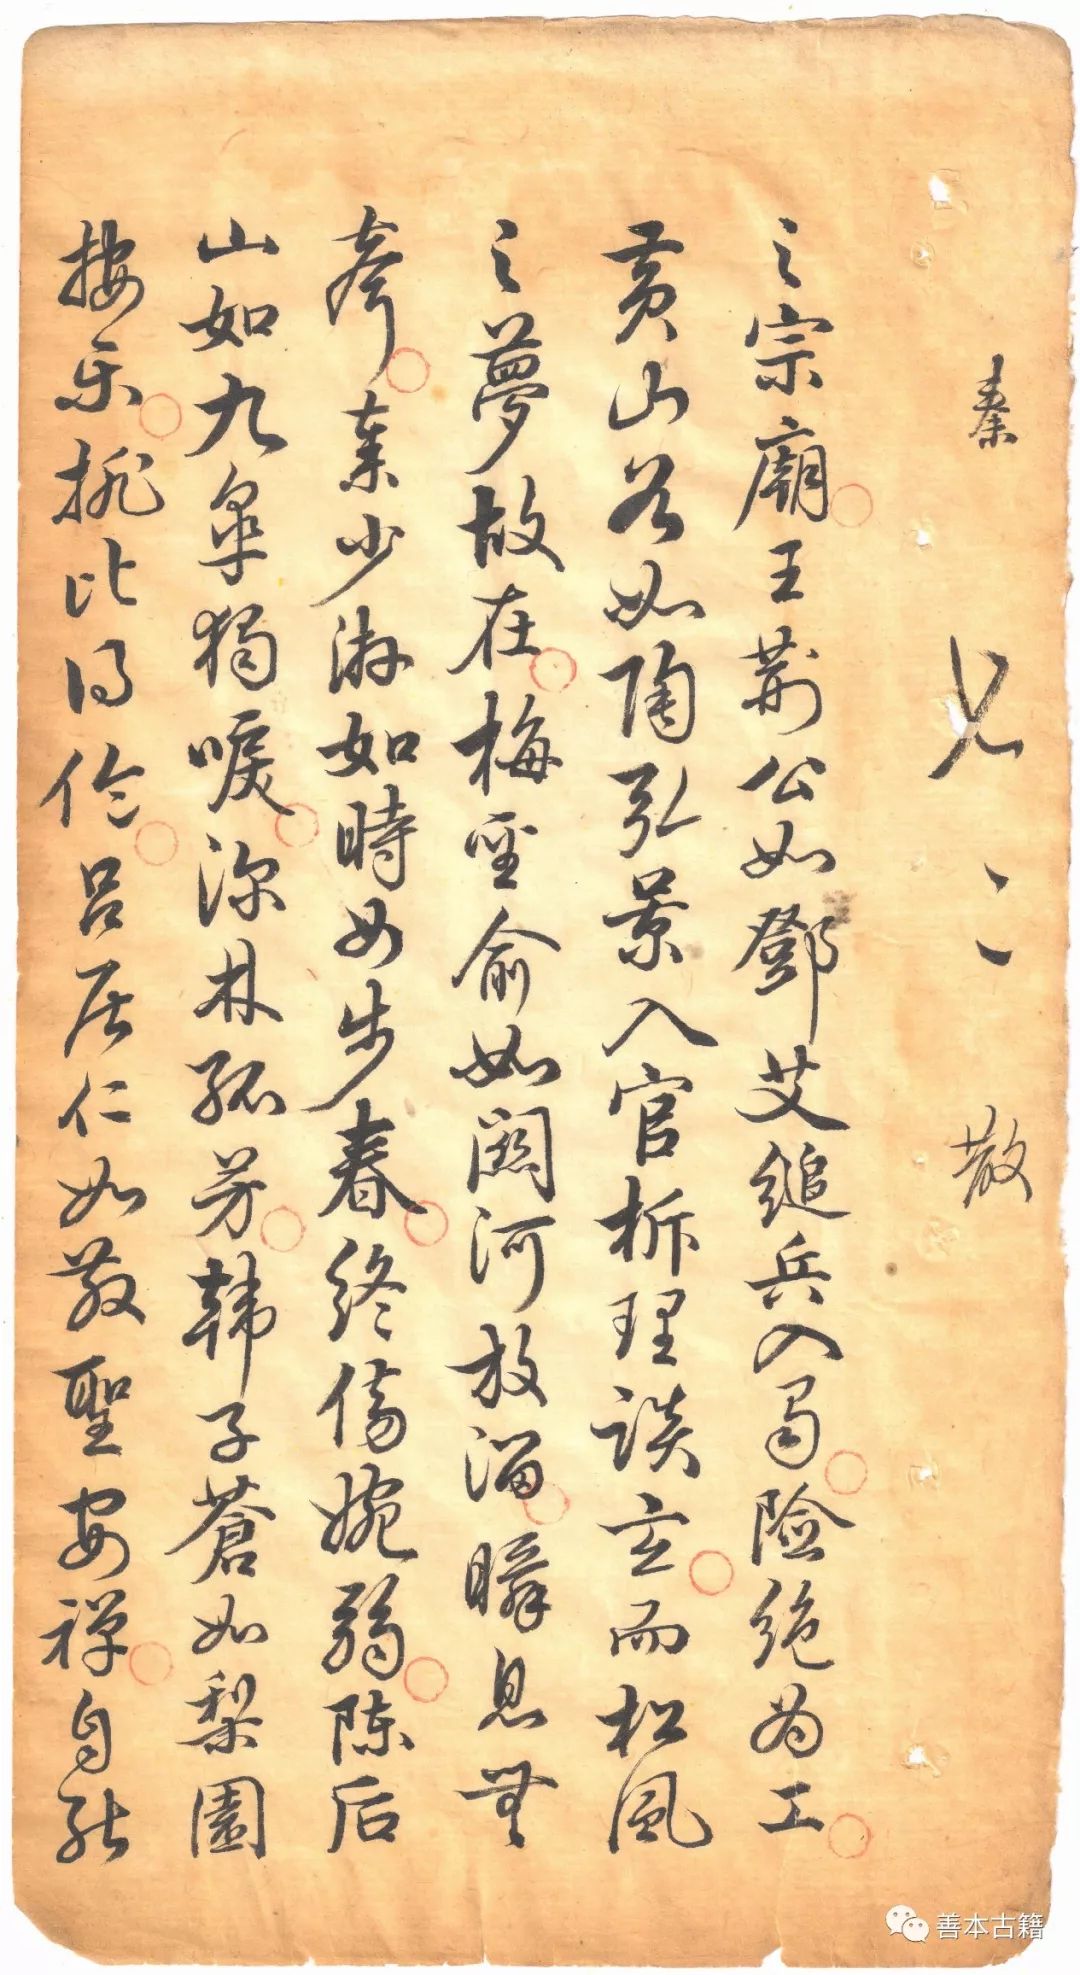 秦 二 散
之宗廟王荆公如鄧艾縋兵入蜀險絶為工
黄山谷如陶弘景入官析理談玄而松風
之夢故在梅聖俞如關河放溜瞬息無
秦少游如時女步春終傷婉弱陳后
山如九皋獨唳深林孤芳韓子蒼如梨園
按乐排比得伶吕居仁如散聖安禪自能
善本古籍